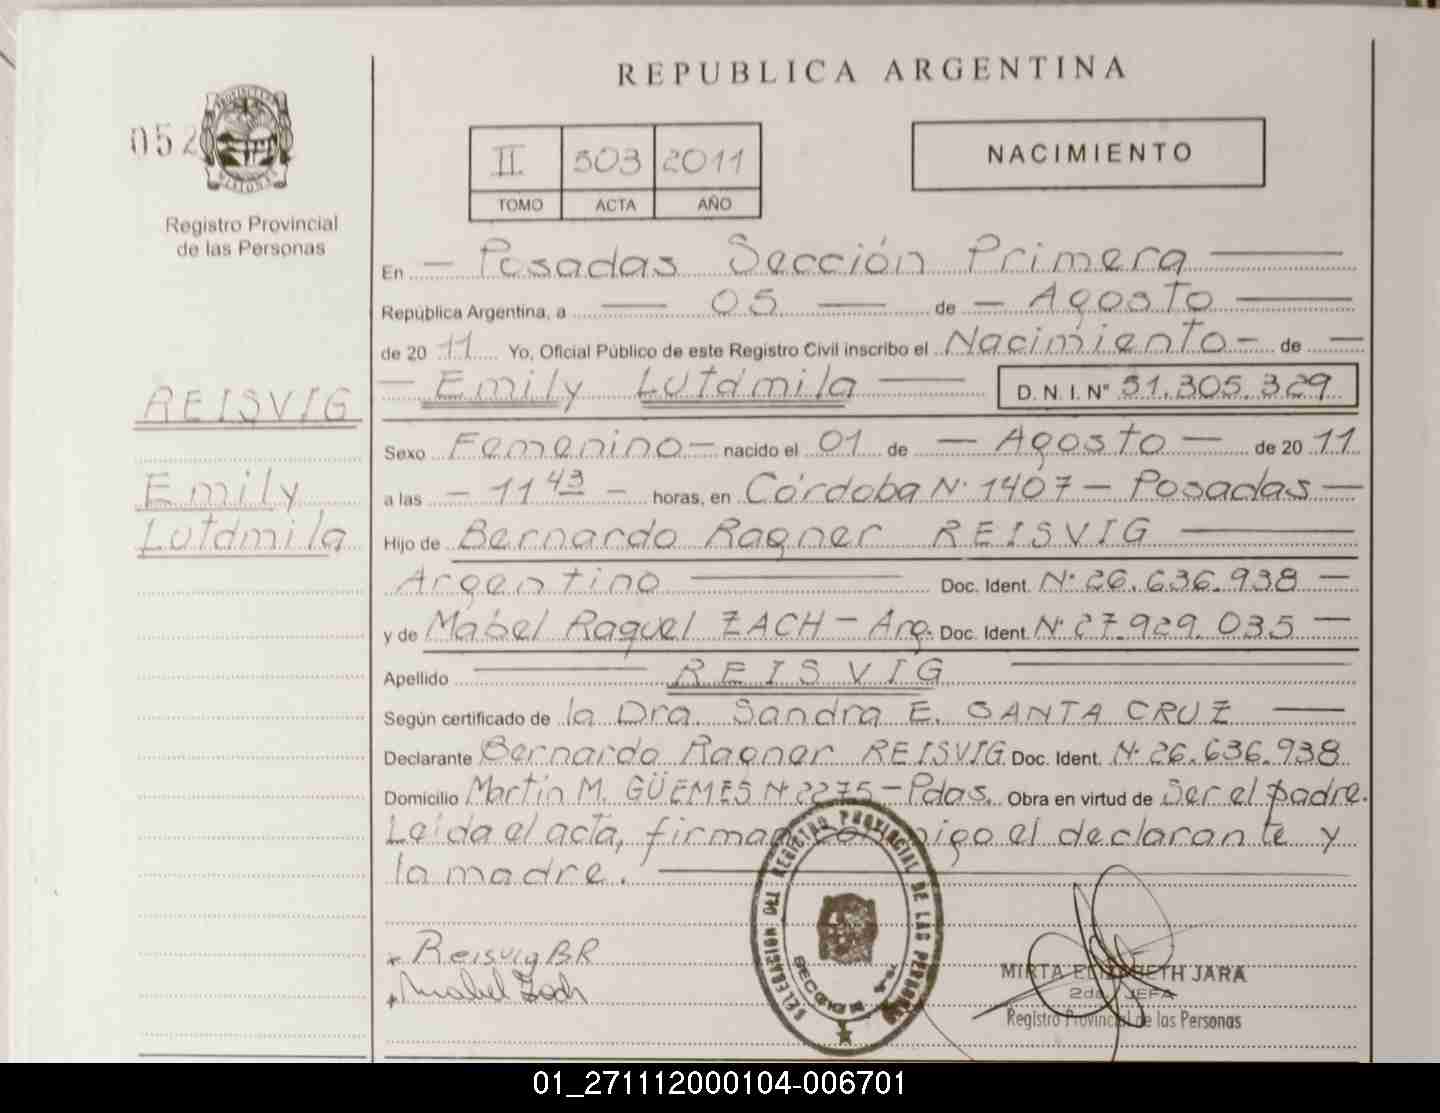 REPUBLICA ARGENTINA
052
Registro Provincial
de las Personas
II 503 2011
TOMO ACTA AÑO
NACIMIENTO
En — Posadas Sección Primera —
República Argentina, a — 05 — de — Agosto —
de 20 11 Yo, Oficial Público de este Registro Civil inscribo el Nacimiento — de —
— Emily Lutdmila — D. N. I. Nº 51.305.329
REISVIG
Emily
Lutdmila
Sexo Femenino — nacido el 01 de — Agosto — de 20 11
a las — 11 43 — horas, en Córdoba Nº 1407 — Posadas —
Hijo de Bernardo Ragner REISVIG —
Argentino — Doc. Ident. Nº 26.636.938 —
y de Mabel Raquel ZACH — Arg. Doc. Ident. Nº 27.929.035 —
Apellido — REISVIG —
Según certificado de la Dra. Sandra E. SANTA CRUZ —
Declarante Bernardo Ragner REISVIG Doc. Ident. Nº 26.636.938
Domicilio Martín M. GÜEMES Nº 2275 — Pdas. Obra en virtud de Ser el padre.
Leída el acta, firman conmigo el declarante y
la madre. —
Reisvig BR
Mabel Zach
DEL REGISTRO PROVINCIAL DE LAS PERSONAS
MIRTA ELIZABETH JARA
2da. JEFA
Registro Provincial de las Personas
01_271112000104-006701